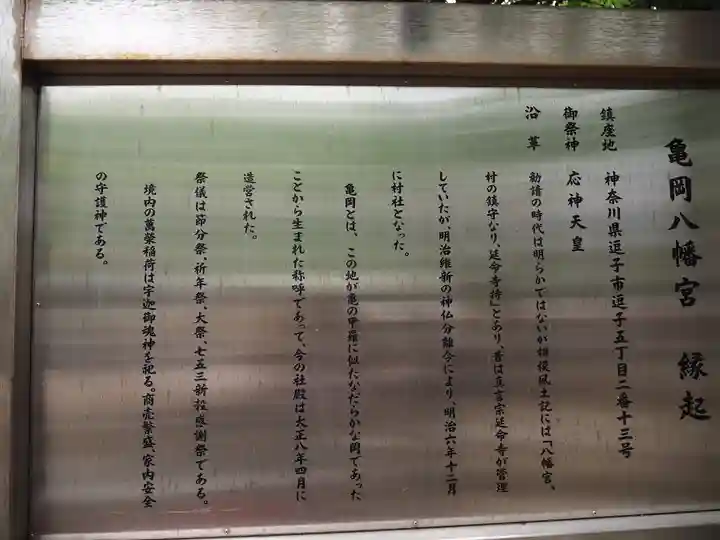 亀岡八幡宮 縁起
鎮座地 神奈川県逗子市逗子五丁目二番十三号
御祭神 応神天皇
沿革 勧請の時代は明らかではないが相模風土記には「八幡宮、
村の鎮守なり、延命寺持」とあり、昔は真言宗延命寺が管理
していたが、明治維新の神仏分離令により、明治六年十二月
に村社となった。
亀岡とは、この地が亀の甲羅に似たなだらかな岡であった
ことから生まれた称呼であって、今の社殿は大正八年四月に
造営された。
祭儀は節分祭、祈年祭、大祭、七五三新穀感謝祭である。
境内の萬榮稲荷は宇迦御魂神を祀る。商売繁盛、家内安全
の守護神である。